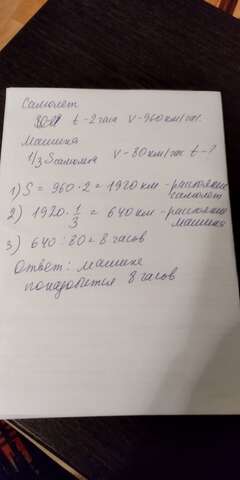 Самолет
t - 2 часа V - 960 км/час.
Машина
1/3 S самолета V - 80 км/час t - ?
1) S = 960 · 2 = 1920 км - расстояние
самолет
2) 1920 · 1/3 = 640 км - расстояние
машина
3) 640 : 80 = 8 часов
Ответ: машине
понадобится 8 часов